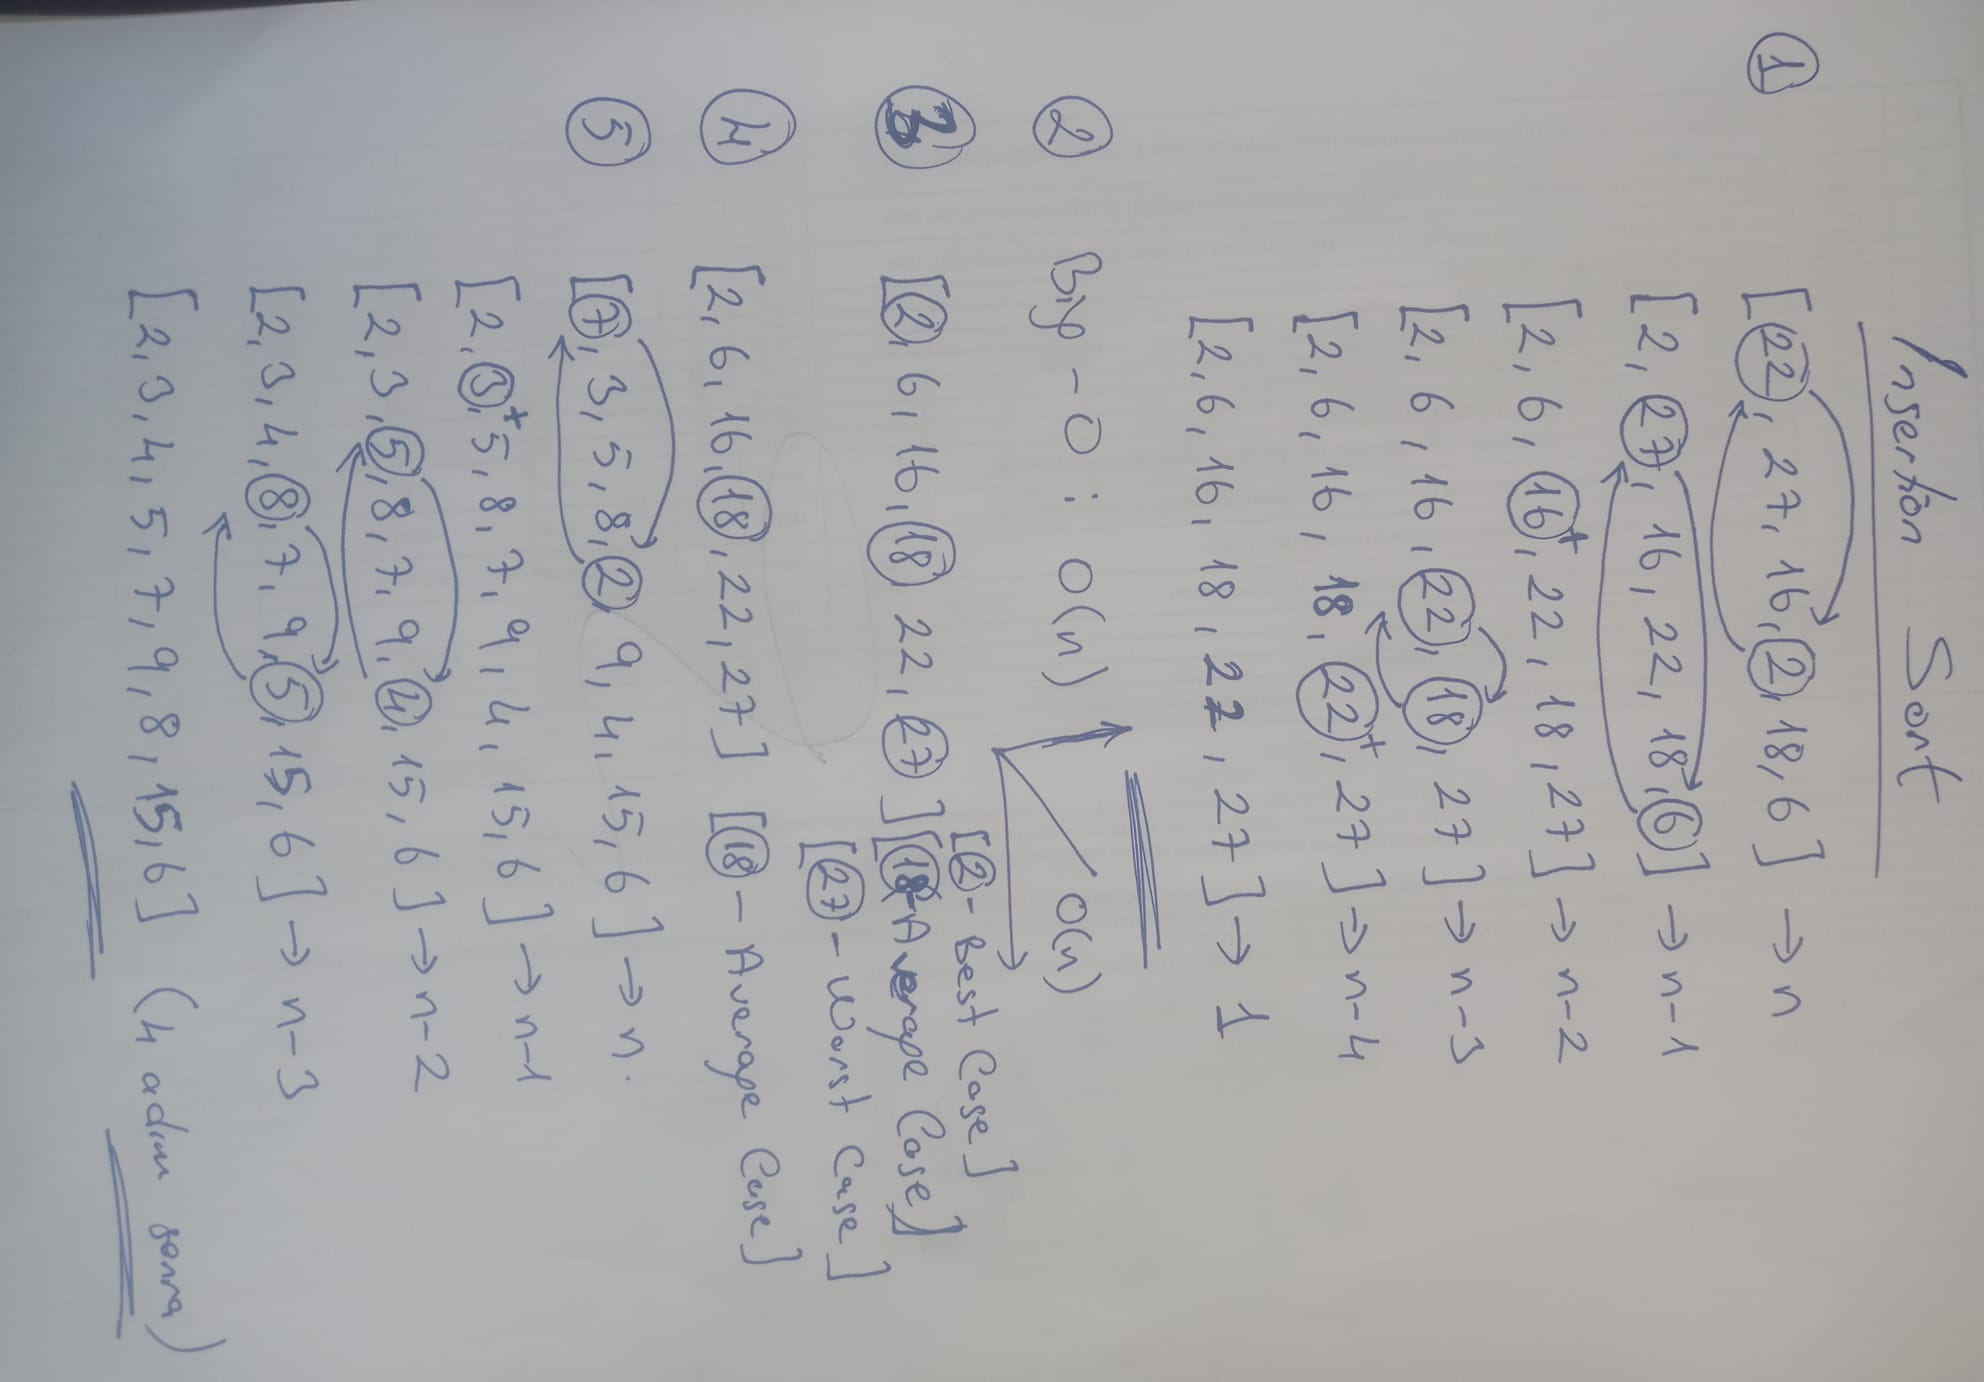 Insertion Sort
① [22, 27, 16, 2, 18, 6] → n
[2, 27, 16, 22, 18, 6] → n-1
[2, 6, 16+, 22, 18, 27] → n-2
[2, 6, 16, 22, 18, 27] → n-3
[2, 6, 16, 18, 22+, 27] → n-4
[2, 6, 16, 18, 22, 27] → 1
② Big-O : O(n) O(n)
[②- Best Case]
③ [2, 6, 16, 18 22, 27] [18-Average Case]
[27 - Worst Case]
④ [2, 6, 16, 18, 22, 27] [18 - Average Case]
⑤ [7, 3, 5, 8, 2, 9, 4, 15, 6] → n.
[2, 3,+ 5, 8, 7, 9, 4, 15, 6] → n-1
[2, 3, 5, 8, 7, 9, 4, 15, 6] → n-2
[2, 3, 4, 8, 7, 9, 5, 15, 6] → n-3
[2, 3, 4, 5, 7, 9, 8, 15, 6] (4 adım sonra)